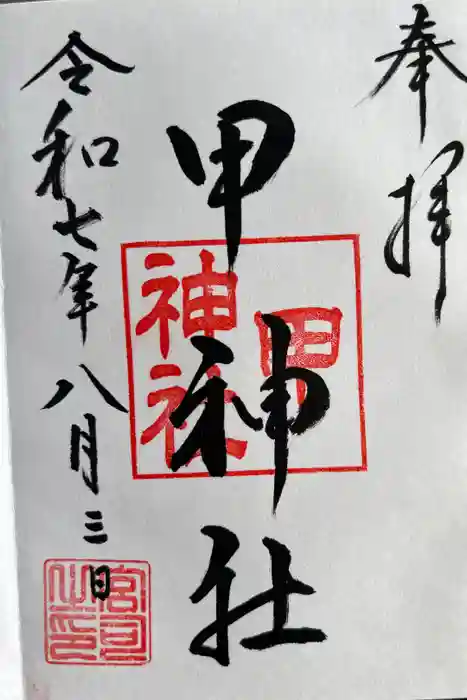 奉拝
甲神社
甲
神社
令和七年八月三日
宮司
之印